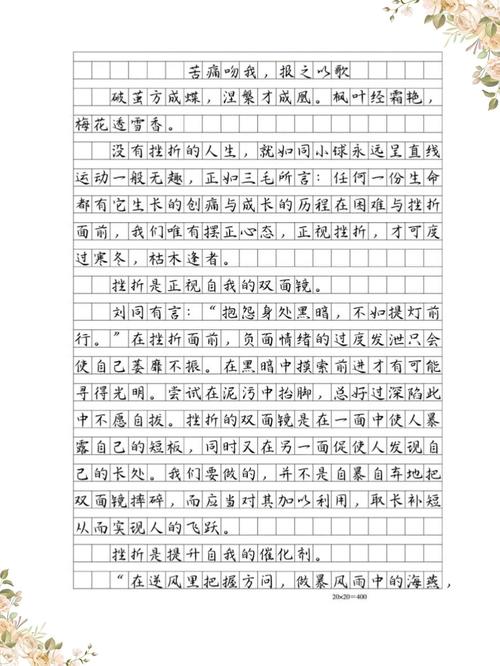 苦痛吻我，报之以歌
破茧方成蝶，涅槃才成凰。枫叶经霜艳，
梅花透雪香。
没有挫折的人生，就如同小球永远呈直线
运动一般无趣，正如三毛所言：任何一份生命
都有它生长的创痛与成长的历程在困难与挫折
面前，我们唯有摆正心态，正视挫折，才可度
过寒冬，枯木逢者。
挫折是正视自我的双面镜。
刘同有言：“抱怨身处黑暗，不如提灯前
行。”在挫折面前，负面情绪的过度发泄只会
使自己萎靡不振。在黑暗中摸索前进才有可能
寻得光明。尝试在泥污中抬脚，总好过深陷此
中不愿自拔。挫折的双面镜是在一面中使人暴
露自己的短板，同时又在另一面促使人发现自
己的长处。我们要做的，并不是自暴自弃地把
双面镜摔碎，而应当对其加以利用，取长补短
从而实现人的飞跃。
挫折是提升自我的催化剂。
“在逆风里把握方问，做暴风雨中的海燕，
20×20=400